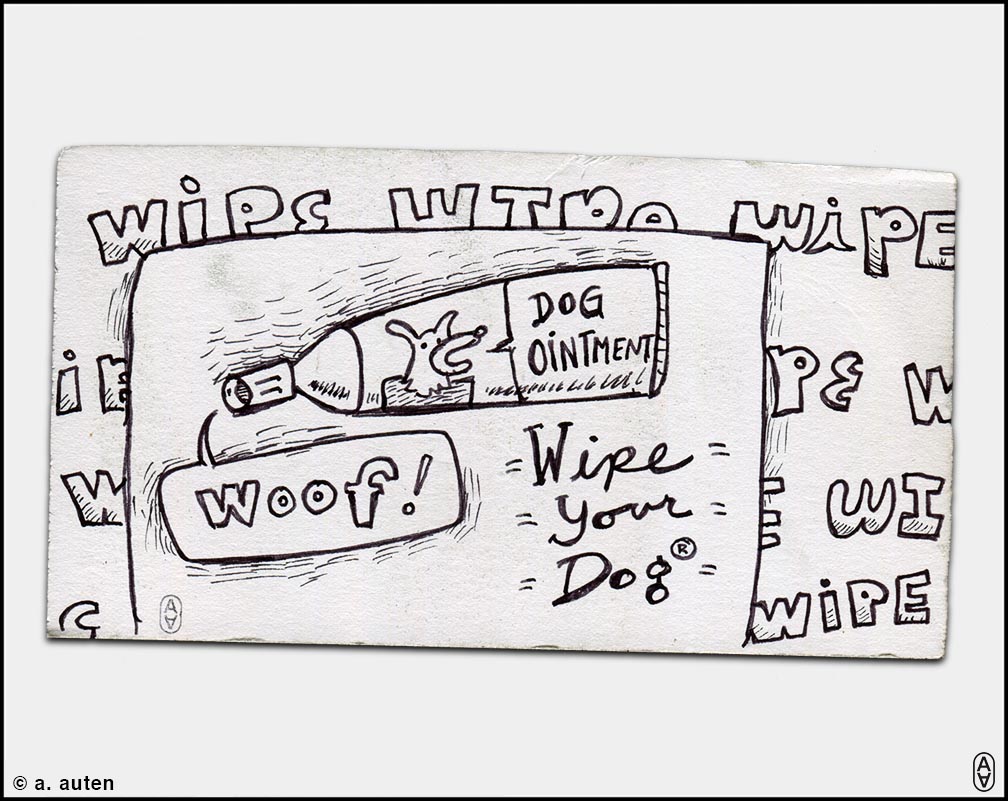 WiPE WIPE WiPE
DOG
OiNTMENT
PE W
Woof!
Wipe
Your
Dog®
W
E WI
WiPE
AA
© a. auten
AA